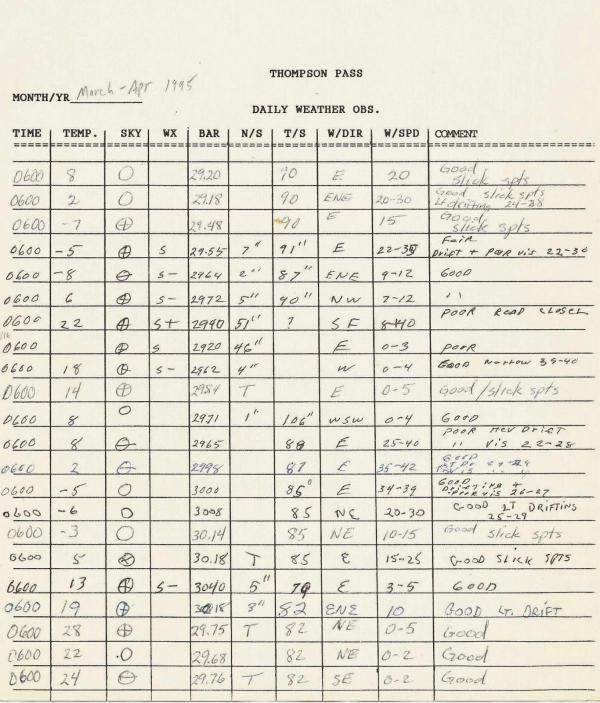 THOMPSON PASS
MONTH/YR March - Apr 1995
DAILY WEATHER OBS.
TIME TEMP. SKY WX BAR N/S T/S W/DIR W/SPD COMMENT
0600 8 29.20 90 E 20 Good slick spts
0600 2 29.18 90 ENE 20-30 Good slick spts
Lt drifting 24-28
0600 -7 29.48 90 E 15 Good slick spts
0600 -5 S 29.55 7" 91" E 22-35 Fair
Drift + Poor vis 22-30
0600 -8 S- 2964 2" 87" ENE 9-12 GOOD
0600 6 S- 2972 5" 90" NW 7-12 ''
0600 22 S+ 2940 51" ? SE 8-40 POOR ROAD CLOSED
0600 S 2920 46" E 0-3 POOR
0600 18 S- 2962 4" W 0-4 GOOD Narrow 39-40
0600 14 2984 T E 0-5 Good/slick spts
0600 8 2971 1" 106" WSW 0-4 GOOD
0600 8 2965 88 E 25-40 POOR HEV DRIFT
'' VIS 22-28
0600 2 2998 87 E 35-42 GOOD
0600 -5 3000 86" E 34-39 GOOD
Drifting +
Poor vis 26-27
0600 -6 3008 85 NE 20-30 GOOD LT DRIFTING
25-29
0600 -3 30.14 85 NE 10-15 Good slick spts
0600 5 30.18 T 85 E 15-25 GOOD SLICK SPTS
0600 13 S- 3040 5" 79 E 3-5 GOOD
0600 19 3018 3" 82 ENE 10 GOOD LT. DRIFT
0600 28 29.75 T 82 NE 0-5 Good
0600 22 29.68 82 NE 0-2 Good
0600 24 29.76 T 82 SE 0-2 Good